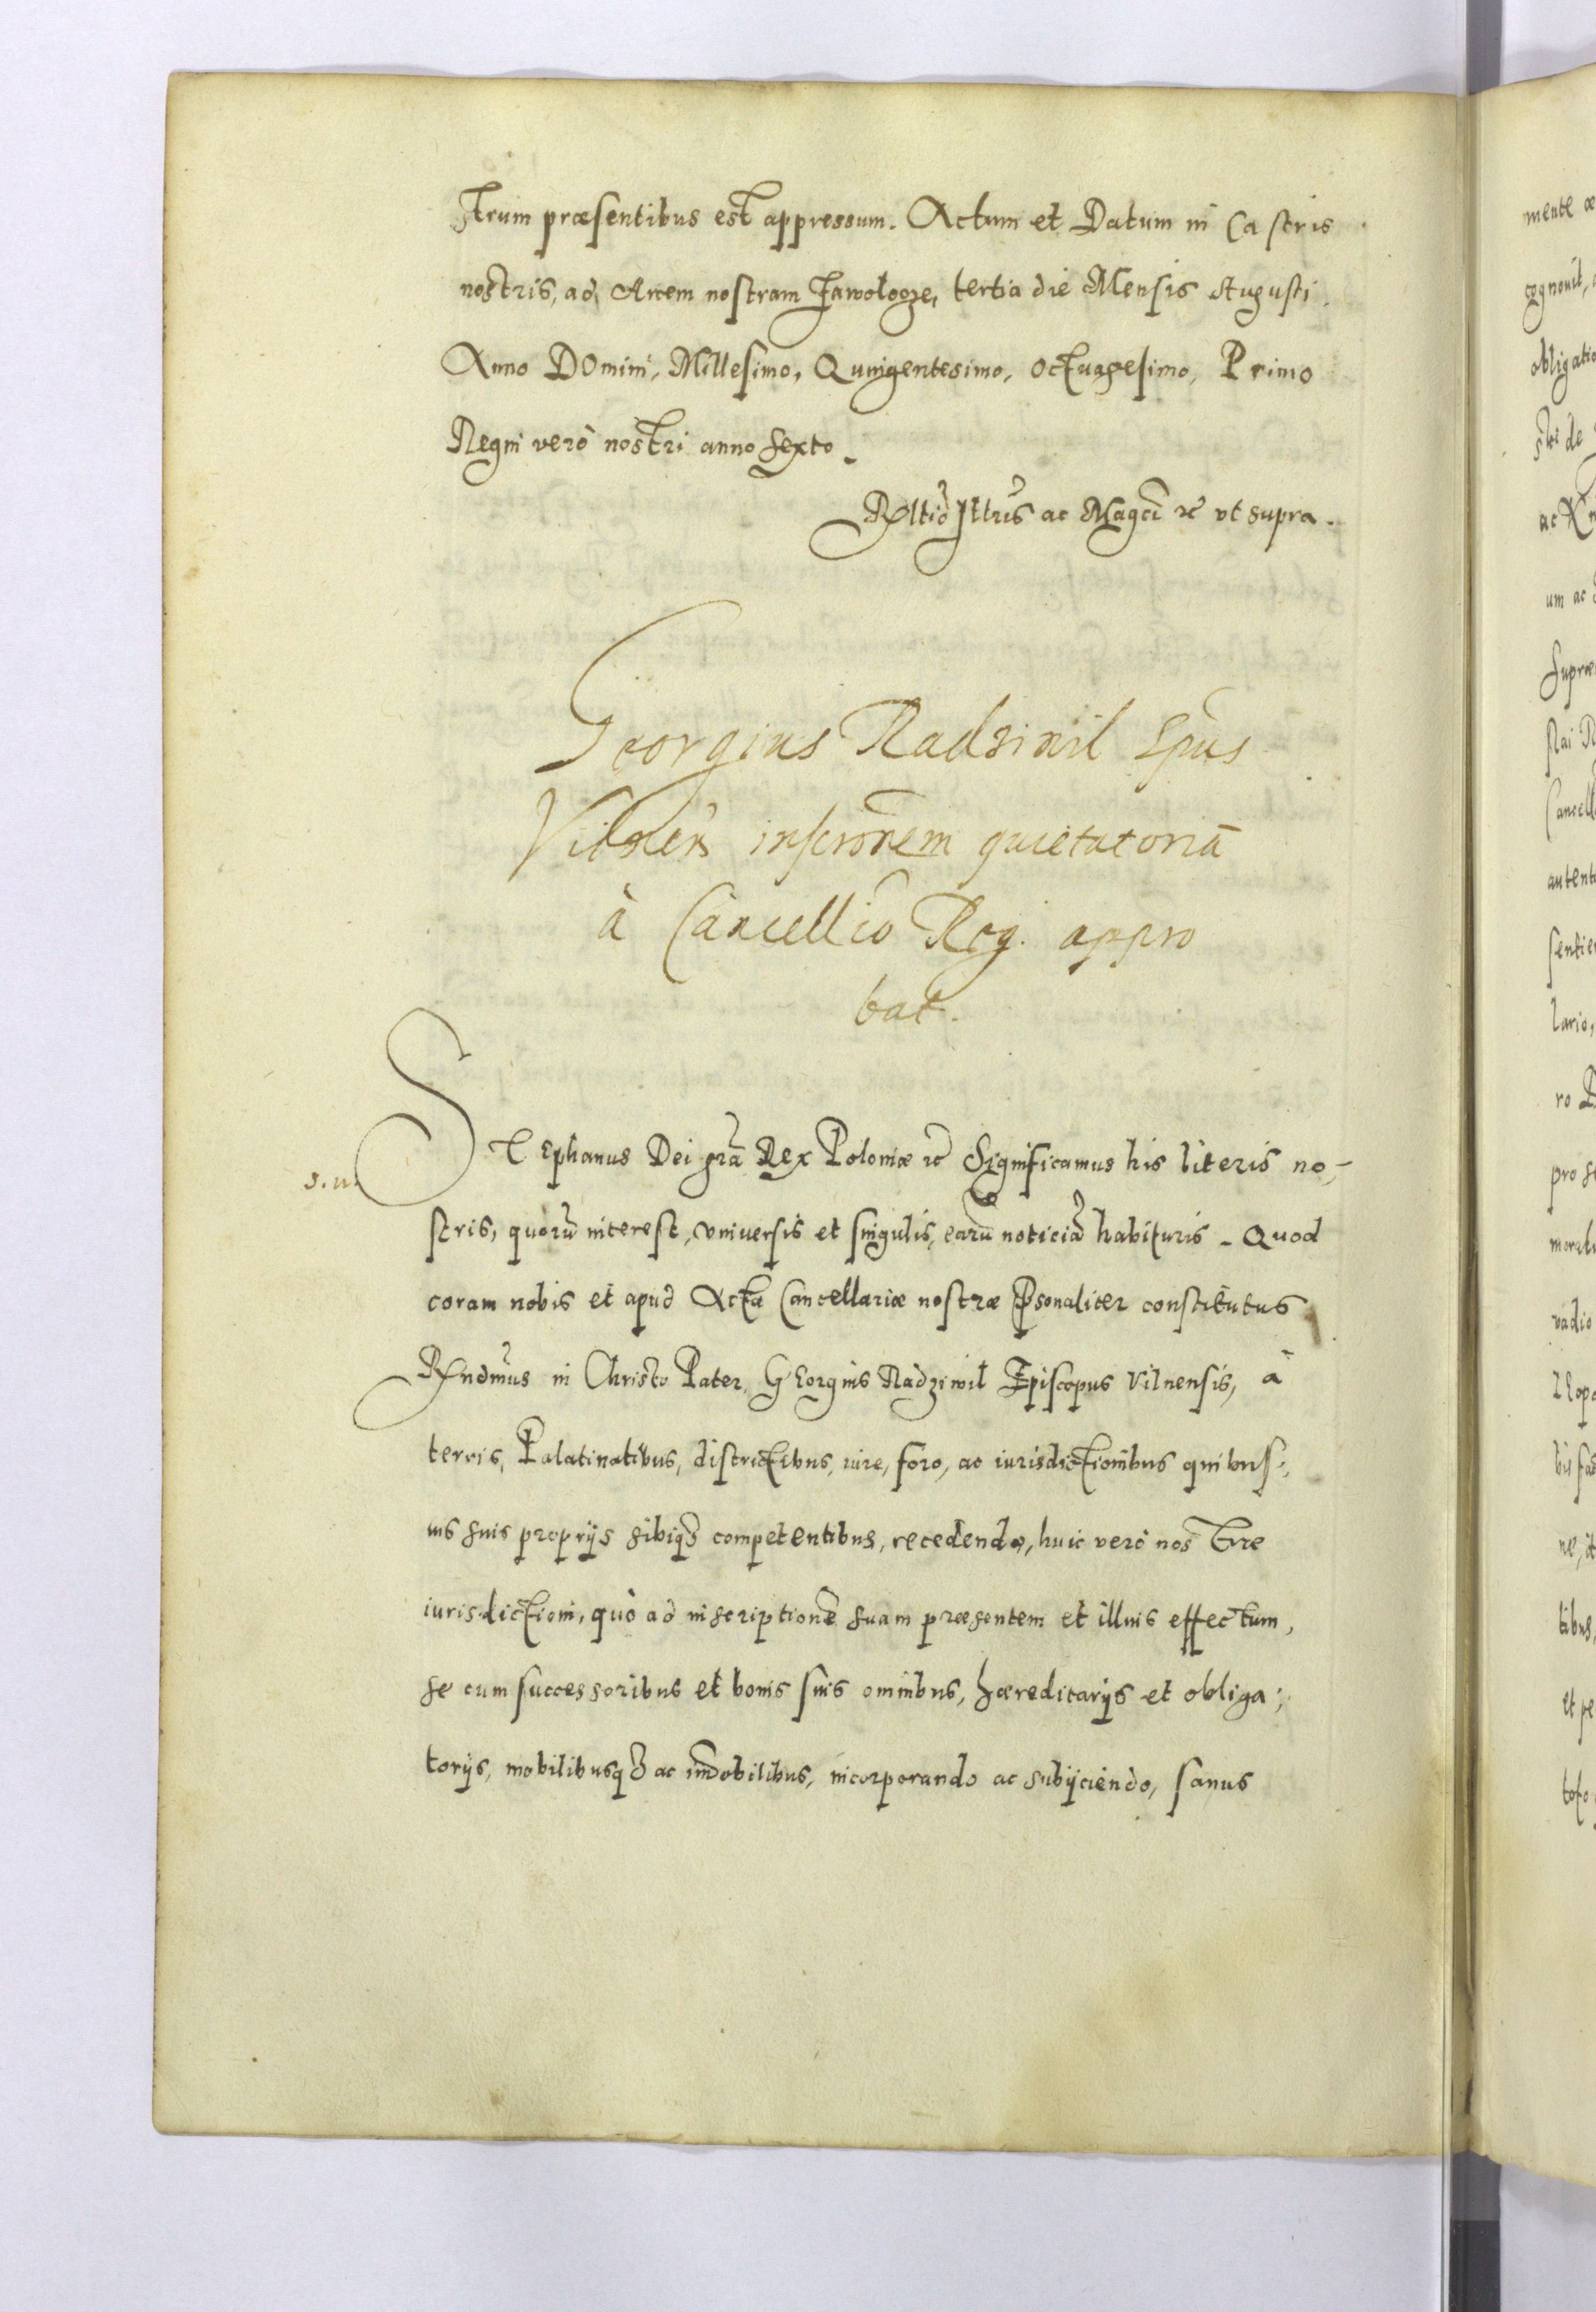 strum præsentibus est appressum. Actum et Datum in Castris
nostris, ad Arcem nostram Zawolocze, tertia die Mensis Augusti.
Anno DOmini, Millesimo, Quingentesimo, Octuagesimo, Primo
Regni verò nostri anno sexto.
Rltio Illris ac Magci &c vt supra.
Georgius Radziwil Epus
Vilnen inscronem quietatoriā
à Cancellio Reg. appro
bat.
STEphanus Dei gra Rex Poloniæ &c Significamus his literis no-
stris, quorū interest, vniuersis et singulis, earū noticiā habituris. Quod
coram nobis et apud Acta Cancellariæ nostræ Psonaliter constitutus
Rndmus in Christo Pater, GEorgius Radziwil Episcopus Vilnensis, à
terris, Palatinatibus, districtibus, iure, foro, ac iurisdictionibus quibus-
uis suis proprijs sibiq3 competentibus, recedendo, huic verò nostræ
iurisdictioni, quò ad inscriptionē suam præsentem et illius effectum,
se cum successoribus et bonis suis omnibus, hæreditarijs et obliga-
torijs, mobilibusq3 ac imobilibus, incorporando ac subijciendo, sanus
mente
cognouit,
obligatio
ac
um ac
Cancell
lario,
vadio
tibus,
et pe